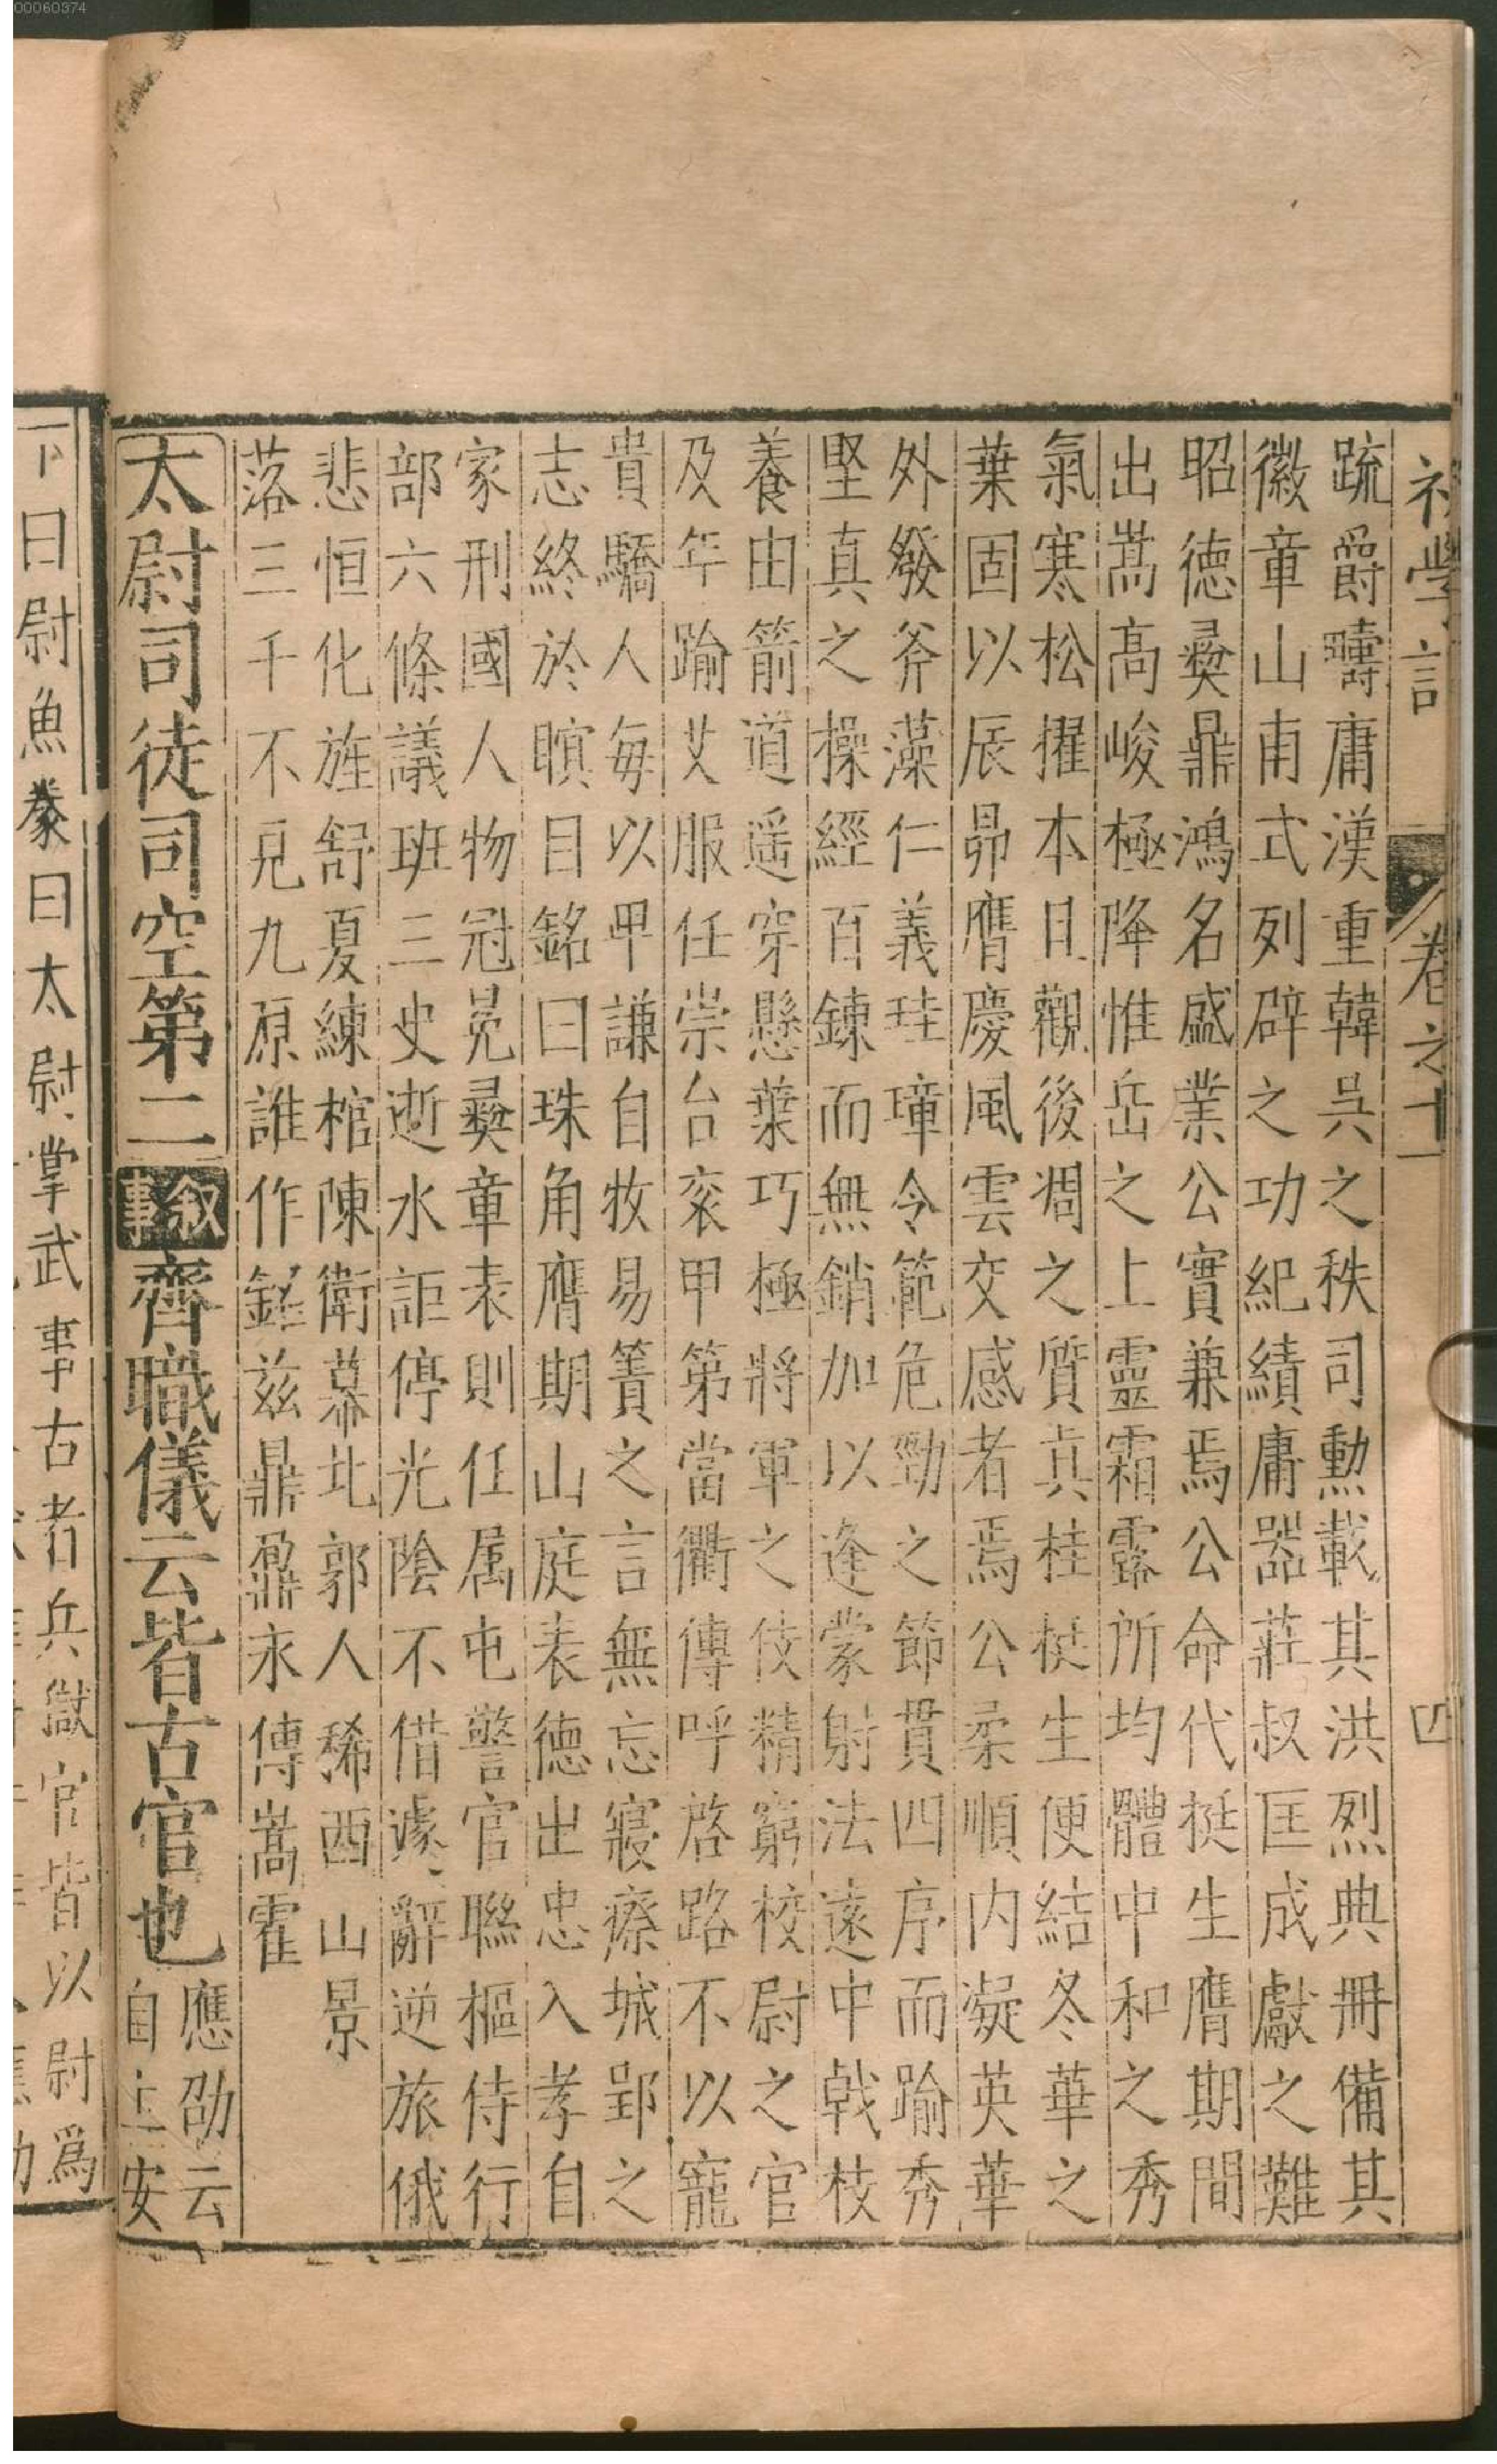 初學記
卷之十一
四
疏爵疇庸漢重韓吳之秩司勲載其洪烈典冊備其
徽章山甫式列辟之功紀績庸器莊叔匡成獻之難
昭德彛鼎鴻名盛業公實兼焉公命代挺生膺期間
出嵩高峻極降惟岳之上靈霜露所均體中和之秀
氣寒松擢本且觀後凋之質貞桂挺生便結冬華之
葉固以辰昴膺慶風雲交感者焉公柔順内凝英華
外發斧藻仁義珪璋令範危勁之節貫四序而踰秀
堅真之操經百鍊而無銷加以逢蒙射法遠中戟枝
養由箭道遥穿懸葉巧極將軍之伎精窮校尉之官
及年踰艾服任崇台衮甲第當衢傳呼啓路不以寵
貴驕人每以卑謙自牧易簀之言無忘寢瘵城郢之
志終於瞑目銘曰珠角膺期山庭表德出忠入孝自
家刑國人物冠冕彛章表則任属屯警官聯樞侍行
部六條議班三史逝水詎停光陰不借遽辭逆旅俄
悲恒化旌舒夏練棺陳衛幕北郭人稀西山景
落三千不見九原誰作銘兹鼎鼐永傳嵩霍
太尉司徒司空第二
叙事
齊職儀云皆古官也
應劭云
自上安
下曰尉魚豢曰太尉掌武事古者兵獄官皆以尉爲